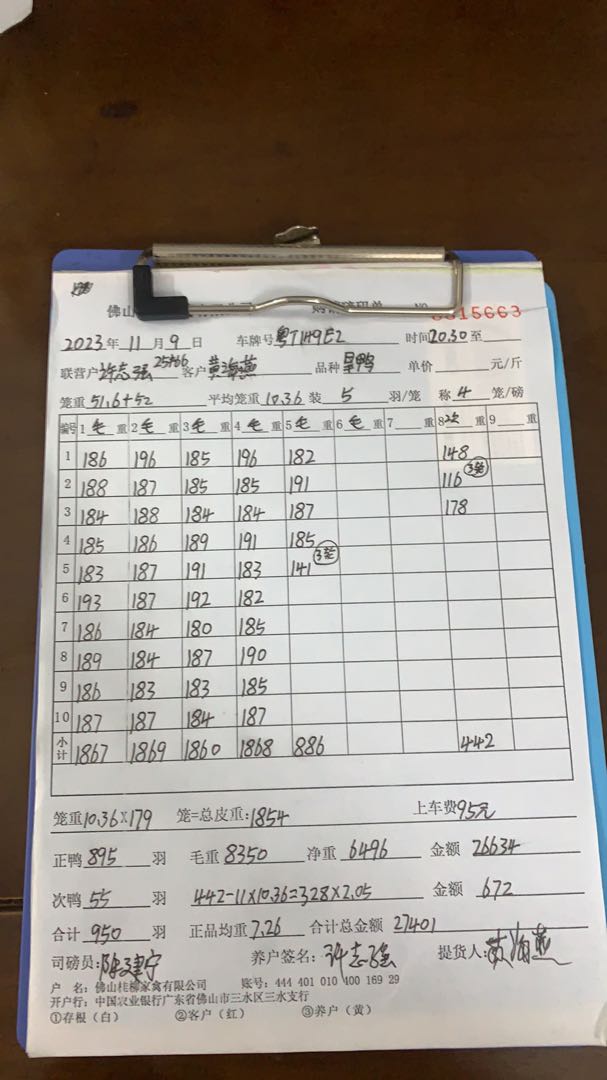 佛山
NO 8815663
2023年11月9日 车牌号粤T1H9E2 时间20.30至
联营户许志强25466 客户黄海燕 品种呈鸭 单价 元/斤
笼重51.6+52 平均笼重10.36 装5 羽/笼 称4 笼/磅
编号 1毛重 2毛重 3毛重 4毛重 5毛重 6毛重 7 重 8次重 9 重
1 186 196 185 196 182 148
2 188 187 185 185 191 116 (3笼)
3 184 188 184 184 187 178
4 185 186 189 191 185
5 183 187 191 183 141 (3笼)
6 193 187 192 182
7 186 184 180 185
8 189 184 187 190
9 186 183 183 185
10 187 187 184 187
小计 1867 1869 1860 1868 886 442
笼重10.36×179 笼=总皮重:1854 上车费95元
正鸭895羽 毛重8350 净重6496 金额26634
次鸭55羽 442-11×10.36=328×2.05 金额672
合计950羽 正品均重7.26 合计总金额27401
司磅员:陈建宁 养户签名:许志强 提货人:黄海燕
户 名:佛山桂柳家禽有限公司 账号:444 401 010 400 169 29
开户行:中国农业银行广东省佛山市三水区三水支行
①存根(白) ②客户(红) ③养户(黄)